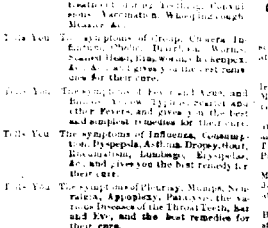 treatment during Teething, Convul-
sions, Vaccination, Whooping cough
Measles &c.
Tells You The symptoms of Croup, Cholera In-
fantum, Cholic, Diarrhœa, Worms,
Scalled Head, Ringworms, Chickenpox,
&c., &c., and gives you the best reme-
dies for their cure.
Tells You The symptoms of Fever and Ague, and
Yellow, Typhus, Scarlet and
other Fevers, and gives you the best
and simplest remedies for their cure.
Tells You The symptoms of Influenza, Consump-
tion, Dyspepsia, Asthma, Dropsy, Gout,
Rheumatism, Lumbago, Erysipelas,
&c., and gives you the best remedy for
their cure.
Tells You The symptoms of Pleurisy, Mumps, Neu-
ralgia, Appoplexy, Paralysis, the va-
rious Diseases of the Throat, Teeth, Ear
and Eye, and the best remedies for
their cure.